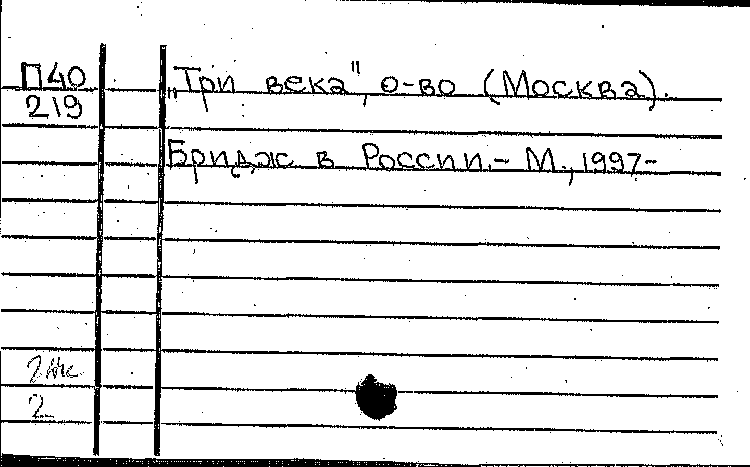 П40
219
„Три века", о-во (Москва).
Бридж в России.- М., 1997-
2